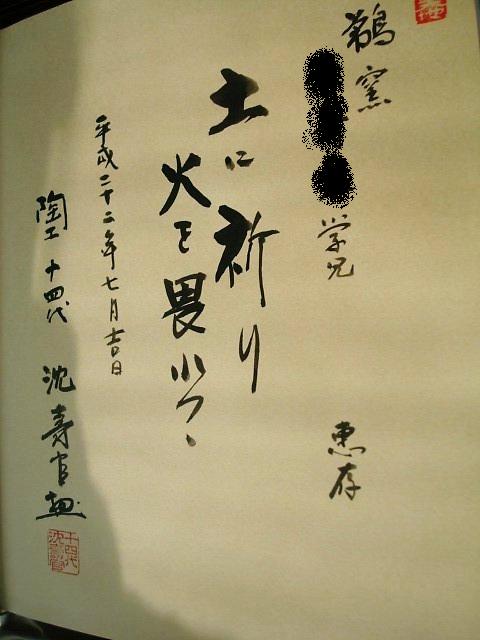 鵜窯 学兄 恵存
土に祈り
火を畏れつゝ
平成二十二年七月吉日
陶工 十四代 沈寿官
十四代
沈壽官